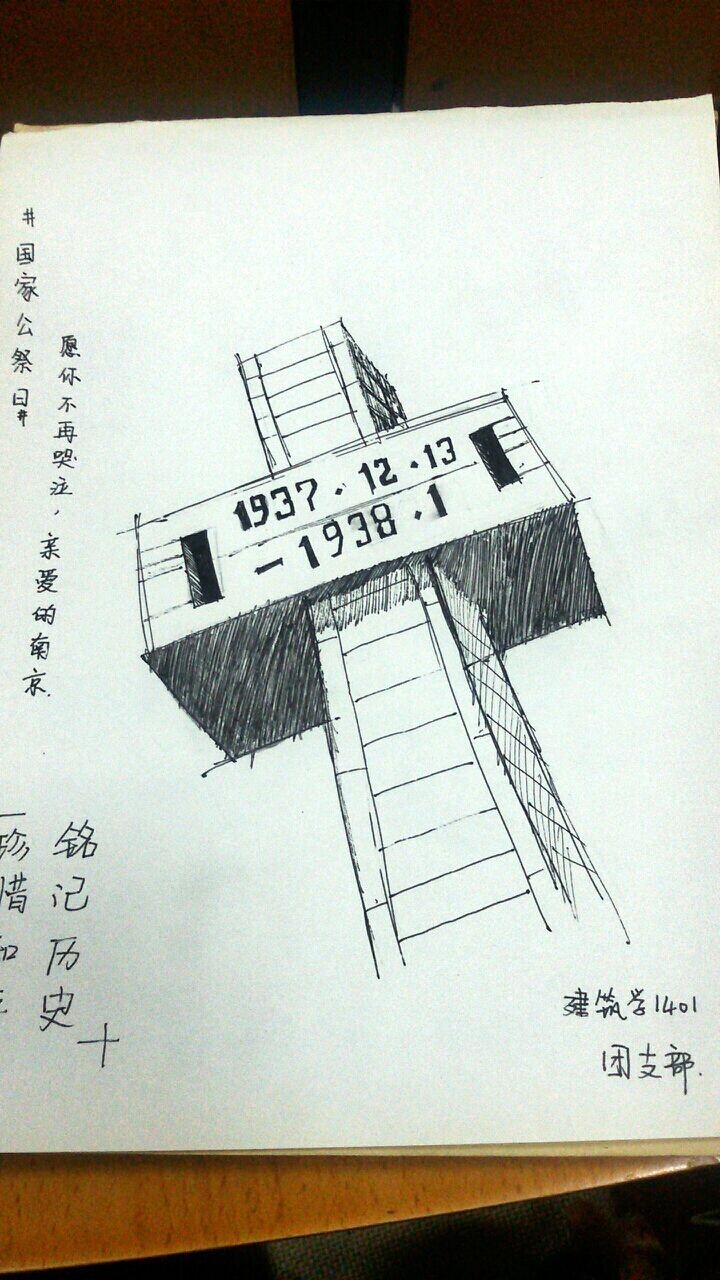 #国家公祭日#
愿你不再哭泣，亲爱的南京.
1937.12.13
-1938.1
铭记历史
珍惜和
建筑学1401
团支部.